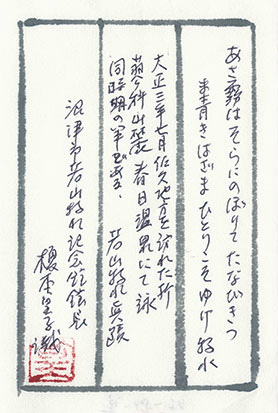 あさ霧はそらにのぼりてたなびきつ
まさ青きはざまひとりこそゆけ 牧水
大正三年七月佐久地方を訪れた折
蓼科山麓春日温泉にて詠
同時期の筆である。 若山牧水真蹟
沼津市若山牧水記念館館長
榎本
識